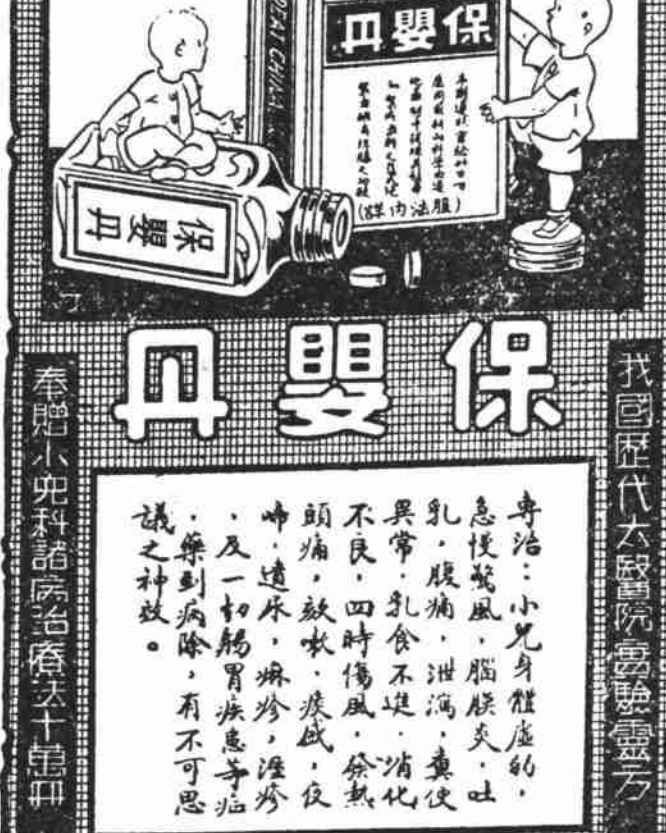 保嬰丹
(服法内詳)
REAT CHINA
保嬰丹
保嬰丹
我國歷代大醫院實驗靈方
專治：小兒身體虛弱，
急慢驚風，腦膜炎，吐
乳，腹痛，泄瀉，糞便
異常，乳食不進，消化
不良，四時傷風，發熱
頭痛，欬嗽，痰盛，夜
啼，遺尿，痳疹，溼疹
，及一切腸胃疾患等症
，藥到病除，有不可思
議之神效。
奉贈小兒科諸病治療法十萬冊